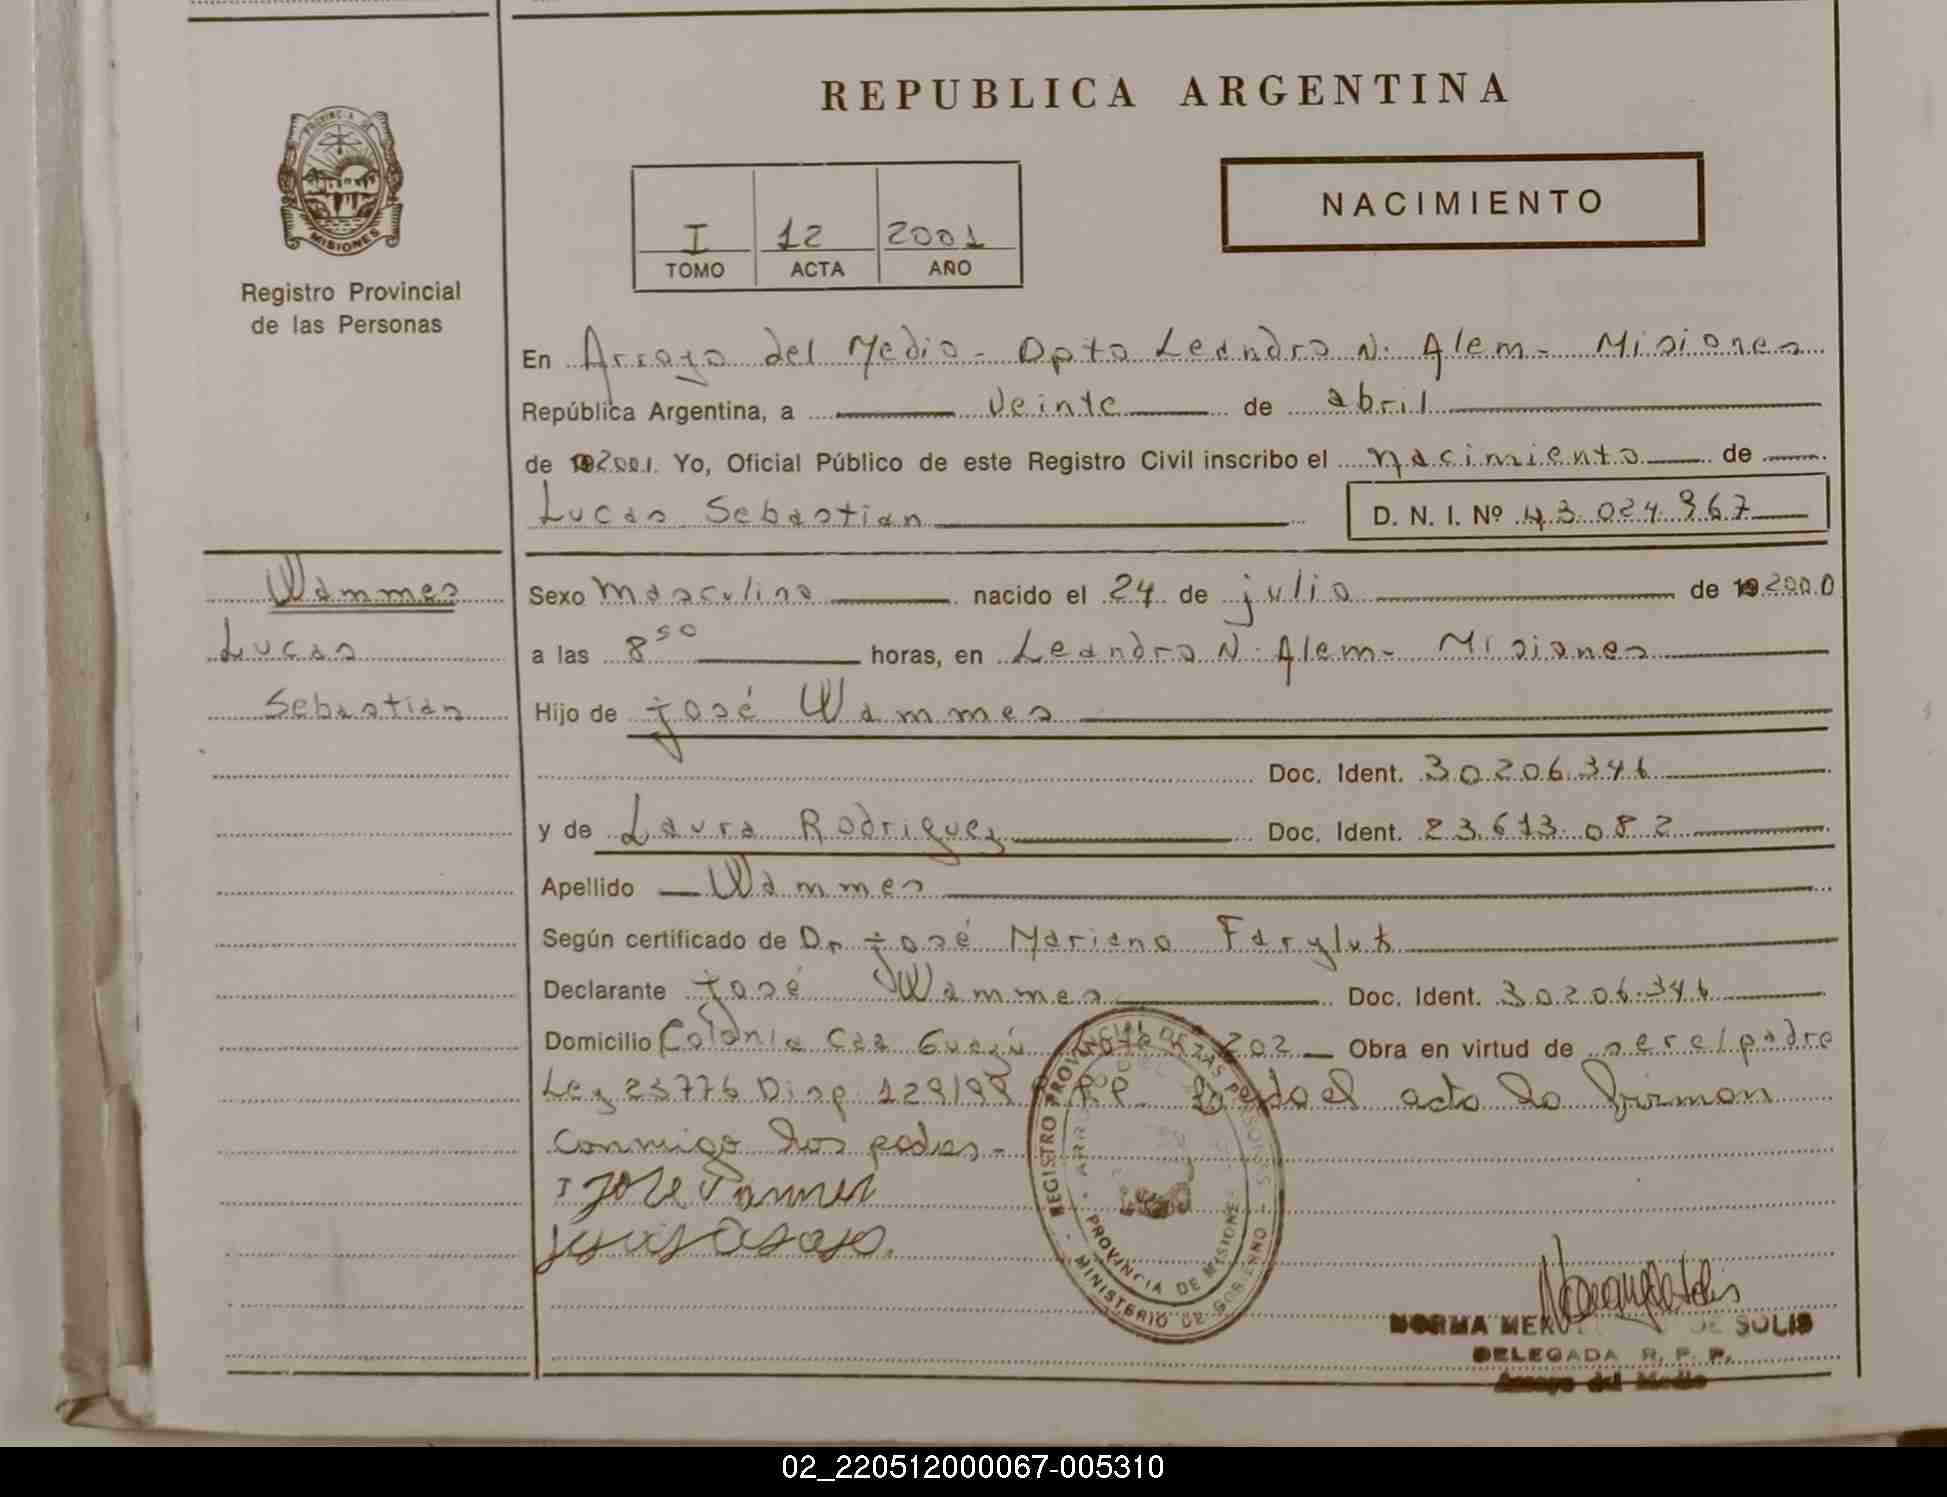 REPUBLICA ARGENTINA
PROVINCIA DE
MISIONES
Registro Provincial
de las Personas
I 12 2001
TOMO ACTA AÑO
NACIMIENTO
En Arroyo del Medio - Dpto Leandro N. Alem - Misiones
República Argentina, a veinte de abril
de 2001. Yo, Oficial Público de este Registro Civil inscribo el nacimiento de
Lucas Sebastian D. N. I. Nº 43.024.967
Wammes
Lucas
Sebastian
Sexo masculino nacido el 24 de julio de 192000
a las 8 50 horas, en Leandro N. Alem - Misiones
Hijo de José Wammes
Doc. Ident. 30.206.346
y de Laura Rodriguez Doc. Ident. 23.613.082
Apellido Wammes
Según certificado de Dr José Mariano Faryluk
Declarante José Wammes Doc. Ident. 30.206.346
Domicilio Colonia Caa Guazú Lote 202 Obra en virtud de ser el padre
Ley 23776 Disp. 129/99 R.P.P. Leido el acta la firman
conmigo los padres -
REGISTRO PROVINCIAL DE LAS PERSONAS
PROVINCIA DE MISIONES
MINISTERIO DE GOBIERNO
NORMA DE SOLIS
DELEGADA R. P. P.
Arroyo del Medio
02_220512000067-005310